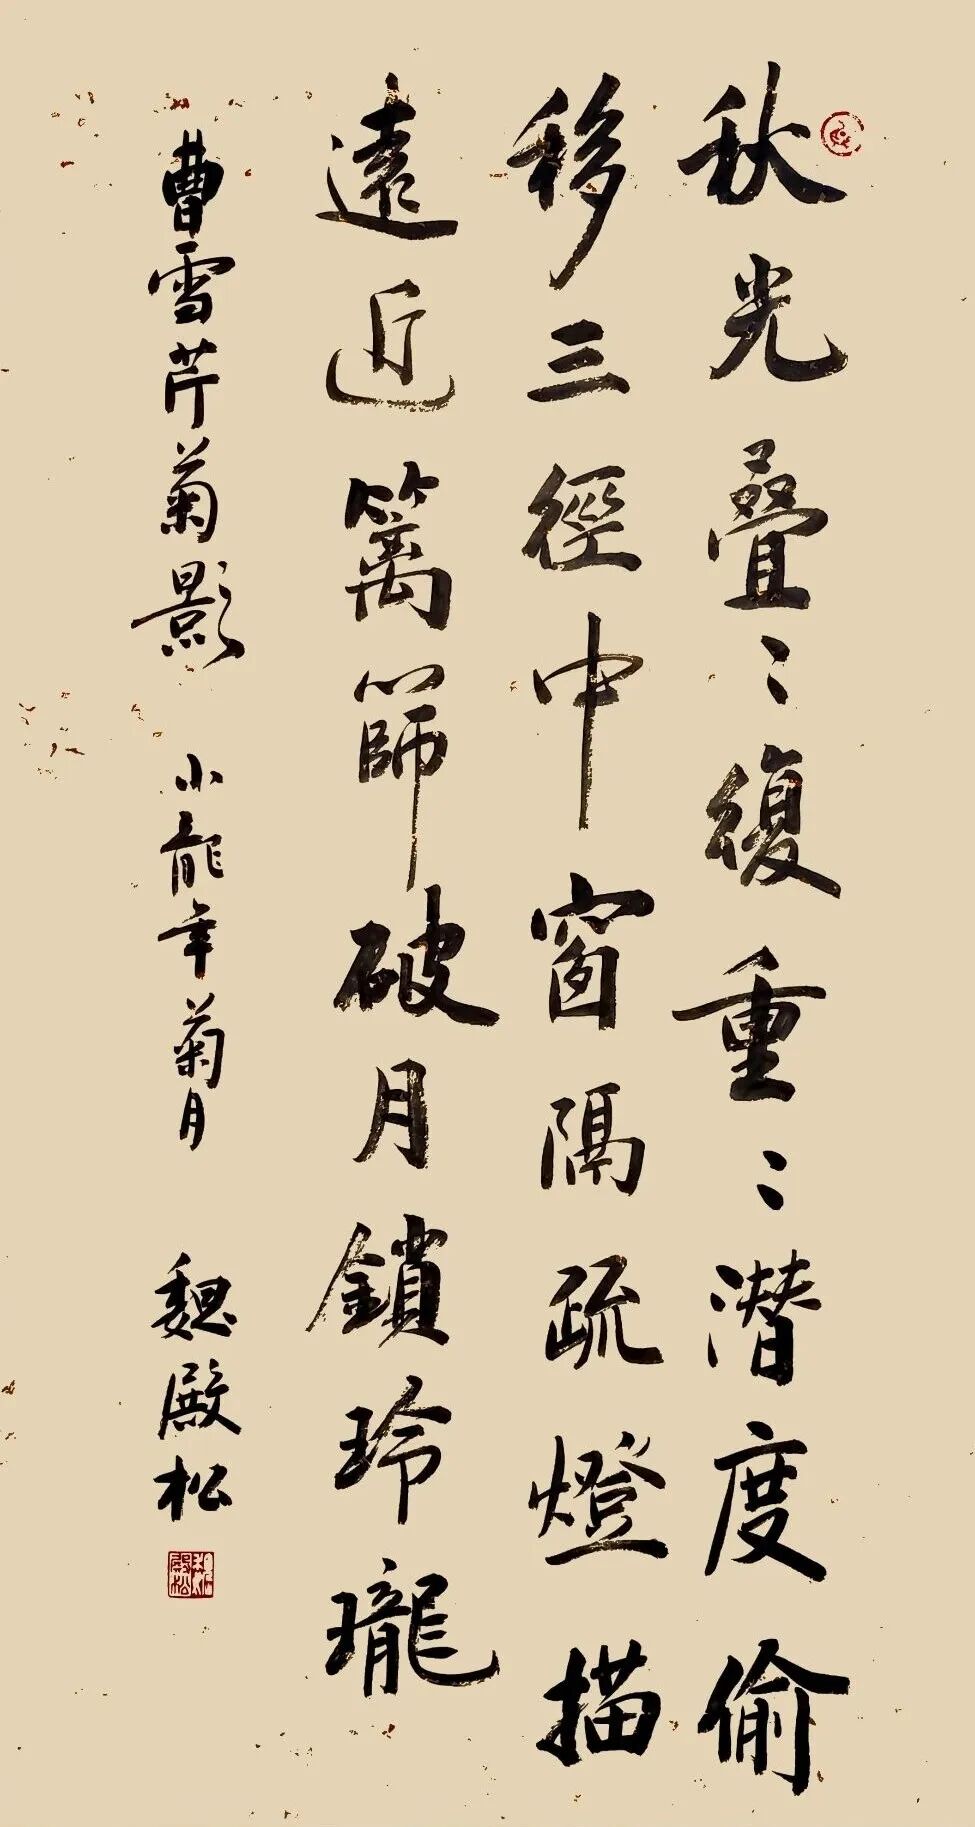 秋光叠〻復重〻潜度偷
移三徑中窗隔疏燈描
遠近篱篩破月鎖玲瓏
曹雪芹菊影 小龍年菊月 魏殿松